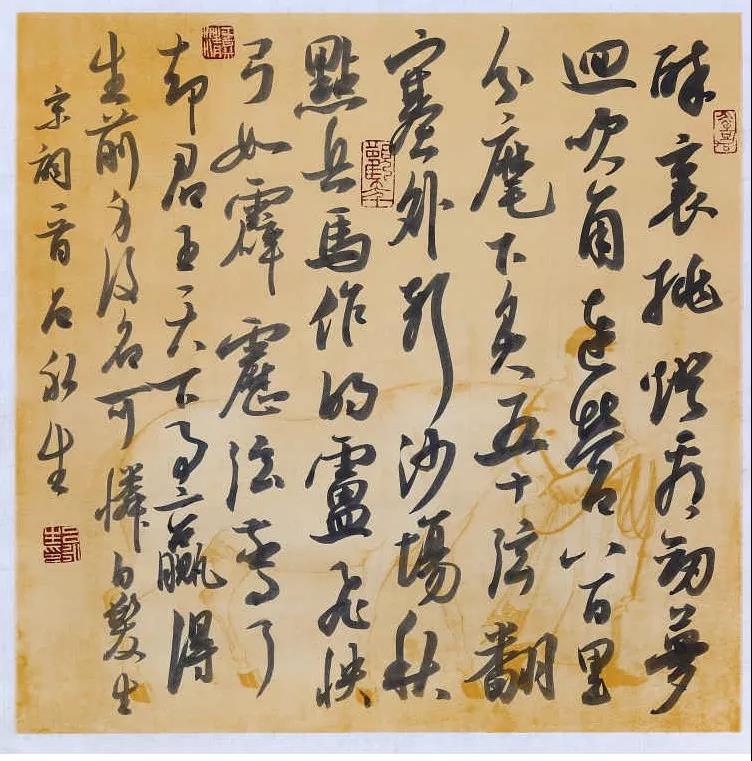 醉裏挑燈看劍夢
迴吹角連營八百里
分麾下炙五十弦翻
塞外聲沙場秋
點兵馬作的盧飛快
弓如霹靂弦驚了
却君王天下事贏得
生前身後名可憐白髮生
宋詞一首石永生